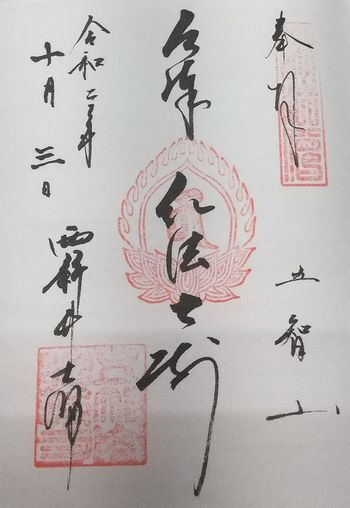 奉拝
五智山
弘法大師
令和二年
十月三日
西新井大師